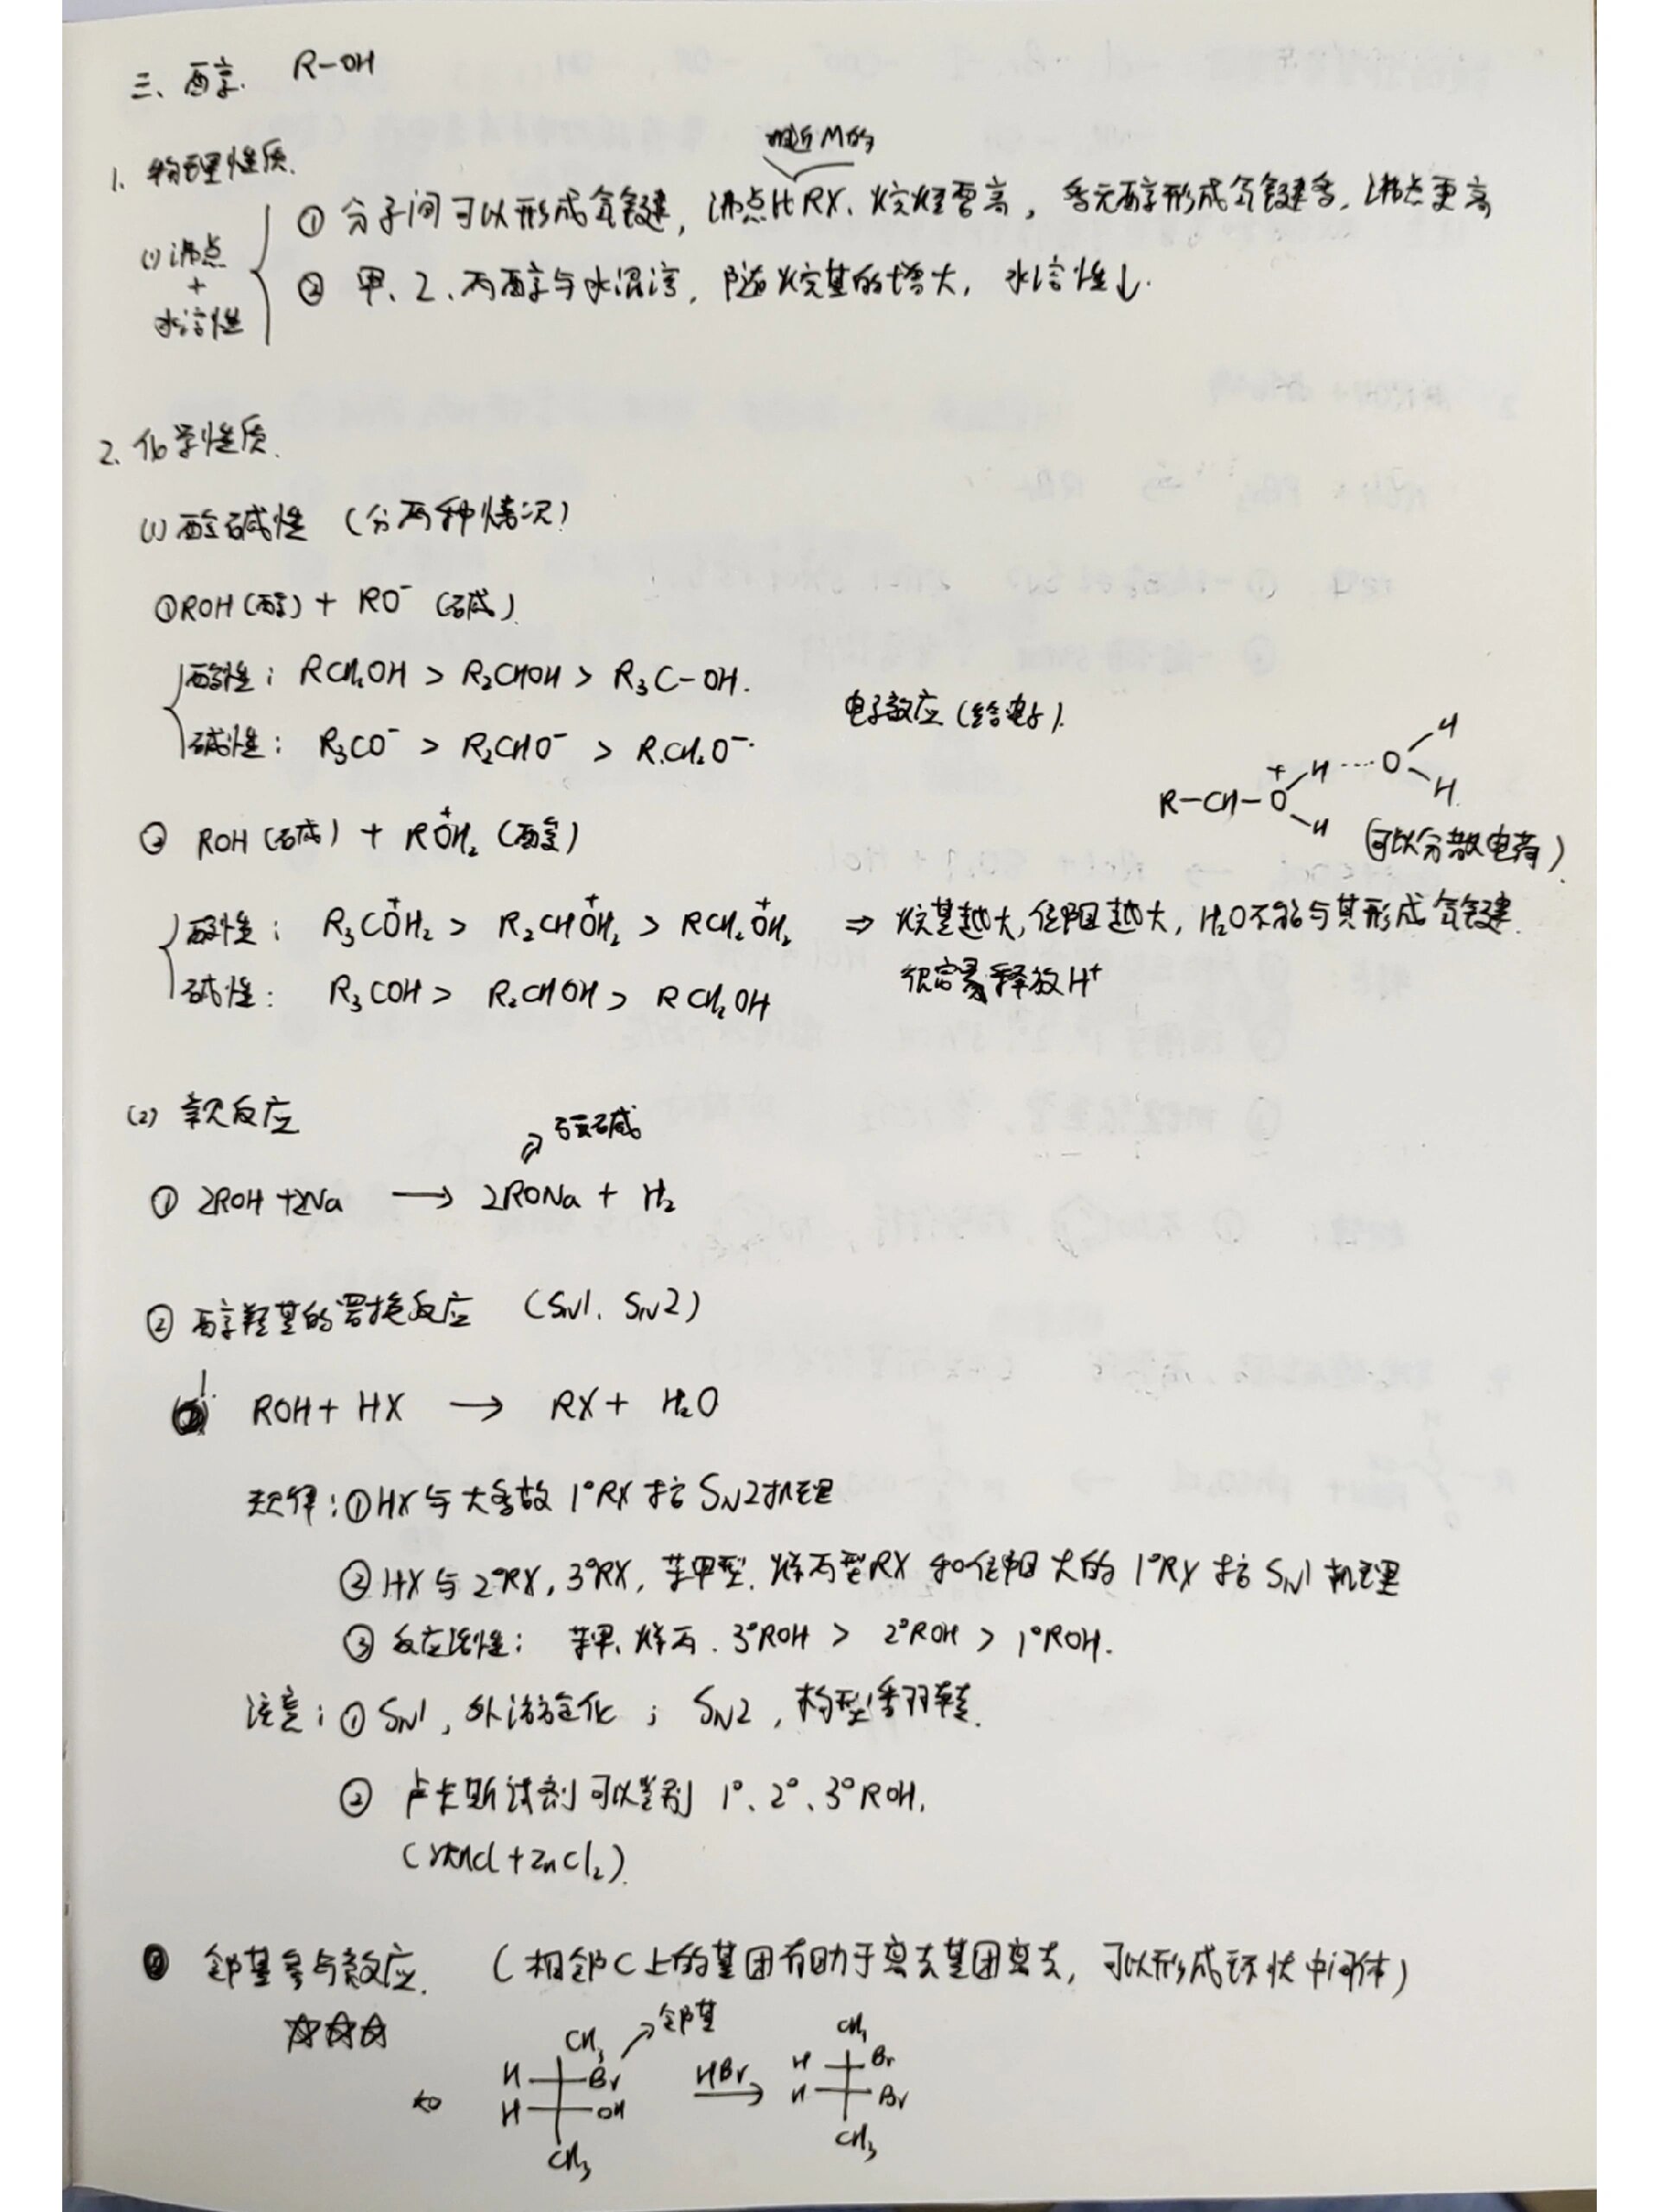 三、醇. R-OH
1. 物理性质.
相近M的
(1) 沸点 + 水溶性
① 分子间可以形成氢键, 沸点比RX、烷烃要高, 多元醇形成氢键多, 沸点更高
② 甲、乙、丙醇与水混溶, 随烷基的增大, 水溶性↓.
2. 化学性质.
(1) 酸碱性 (分两种情况)
① ROH (酸) + RO⁻ (碱)
酸性: RCH₂OH > R₂CHOH > R₃C-OH.
碱性: R₃CO⁻ > R₂CHO⁻ > RCH₂O⁻.
电子效应 (给电子).
R-CH-O⁺ H H ··· O H H
(可以分散电荷).
② ROH (碱) + RO⁺H₂ (酸)
酸性: R₃CO⁺H₂ > R₂CHO⁺H₂ > RCH₂O⁺H₂ ⇒ 烷基越大, 位阻越大, H₂O不能与其形成氢键.
很容易释放H⁺
碱性: R₃COH > R₂CHOH > RCH₂OH
(2) 亲核反应
强碱
① 2ROH + 2Na → 2RONa + H₂
② 醇羟基的置换反应 (SN1、SN2)
ROH + HX → RX + H₂O
规律: ① HX与大多数1°RX按SN2机理
② HX与2°RX, 3°RX, 苄甲型、烯丙型RX和位阻大的1°RX按SN1机理
③ 反应活性: 苄甲、烯丙、3°ROH > 2°ROH > 1°ROH.
注意: ① SN1, 外消旋化; SN2, 构型翻转.
② 卢卡斯试剂可以鉴别1°、2°、3°ROH.
(浓HCl + ZnCl₂).
邻基参与效应. (相邻C上的基团有助于离去基团离去, 可以形成环状中间体)
☆☆☆
邻基
如
CH₃ CH₃
H Br HBr H Br
H OH → H Br
CH₃ CH₃